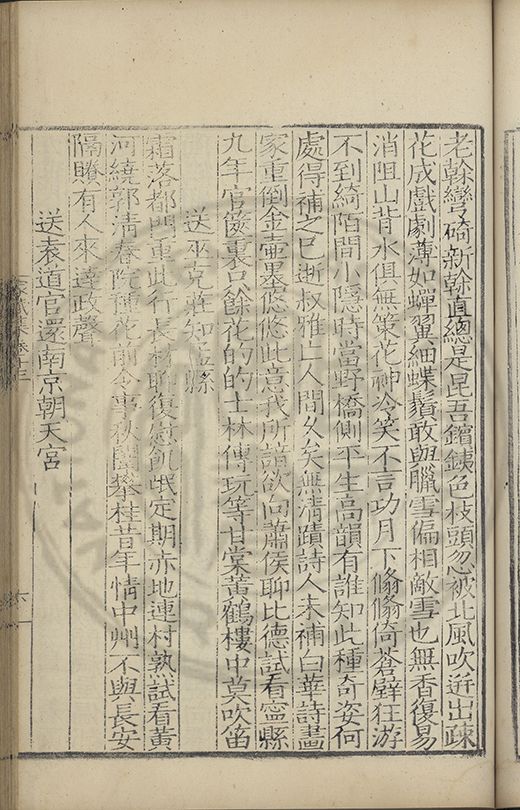 老榦彎碕新榦直總是昆吾鑌鋏色枝頭忽被北風吹迸出疎
花成戲劇薄如蟬翼細蝶鬚敢與臘雪偏相敵雪也無香復易
消阻山背水俱無策花神冷笑不言功月下翛翛倚蒼壁狂游
不到綺陌間小隱時當野橋側平生高韻有誰知此種奇姿何
處得補之已逝叔雅亡人間久矣無清蹟詩人未補白華詩畫
家重倒金壺墨悠悠此意我所諳欲向蕭侯聊比德試看寧縣
九年官篋裏只餘花的的士林傳玩等甘棠黃鶴樓中莫吹笛
送巫克莊知盧縣
霜落都門重此行長材聊復慰飢氓定期赤地連村熟試看黃
河繞郭清春院種花前令事秋闈攀桂昔年情中州不與長安
隔賸有人來達政聲
送袁道官還南京朝天宮